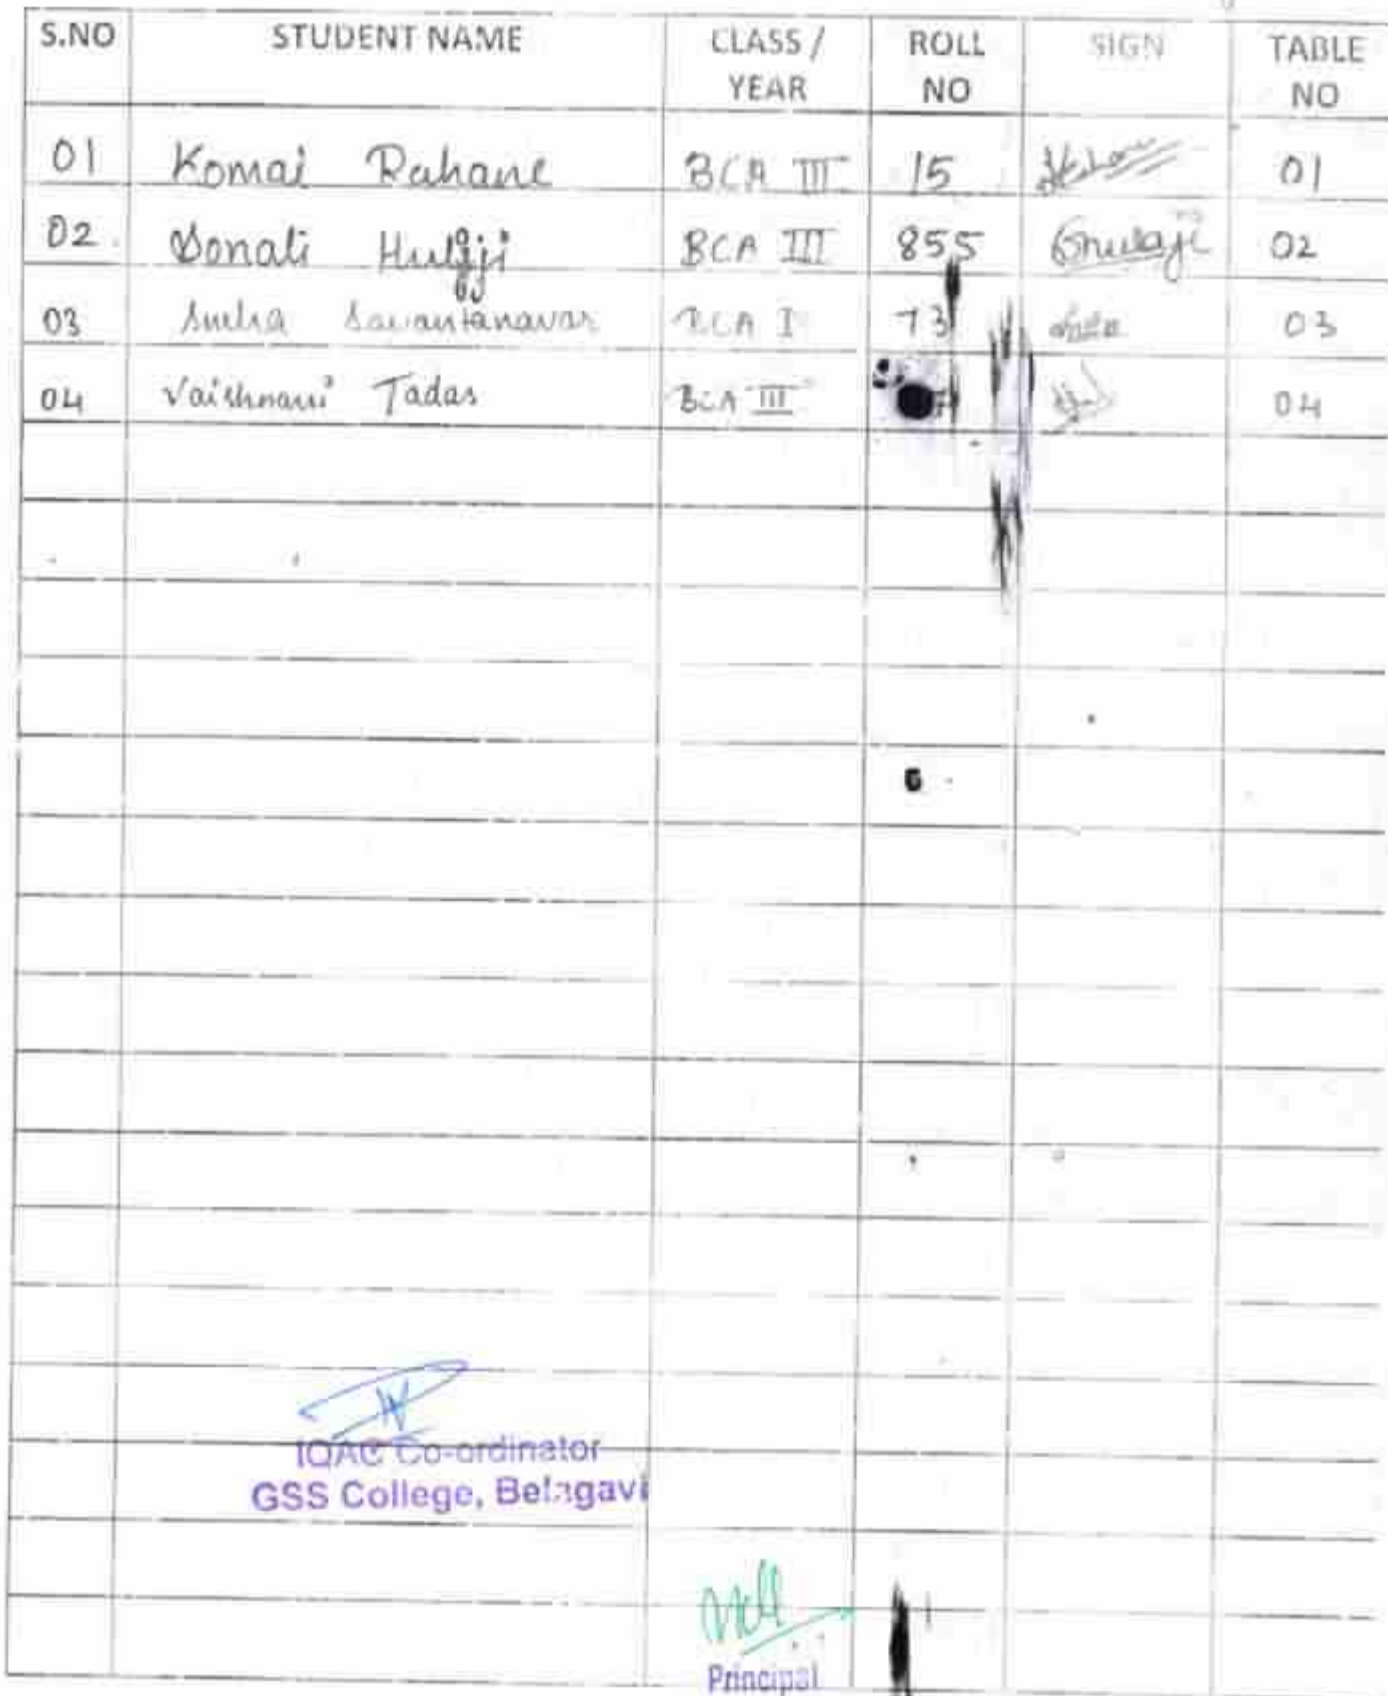 S.NO STUDENT NAME CLASS / YEAR ROLL NO SIGN TABLE NO
01 Komal Rahane BCA III 15 01
02. Sonali Hulji BCA III 855 02
03 Savantanavar BCA I 73 03
04 Vaishnavi Tadas BCA III 04
IQAC Co-ordinator
GSS College, Belagavi
Principal